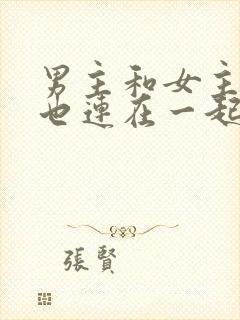 男主和女主
也連在一起
張賢